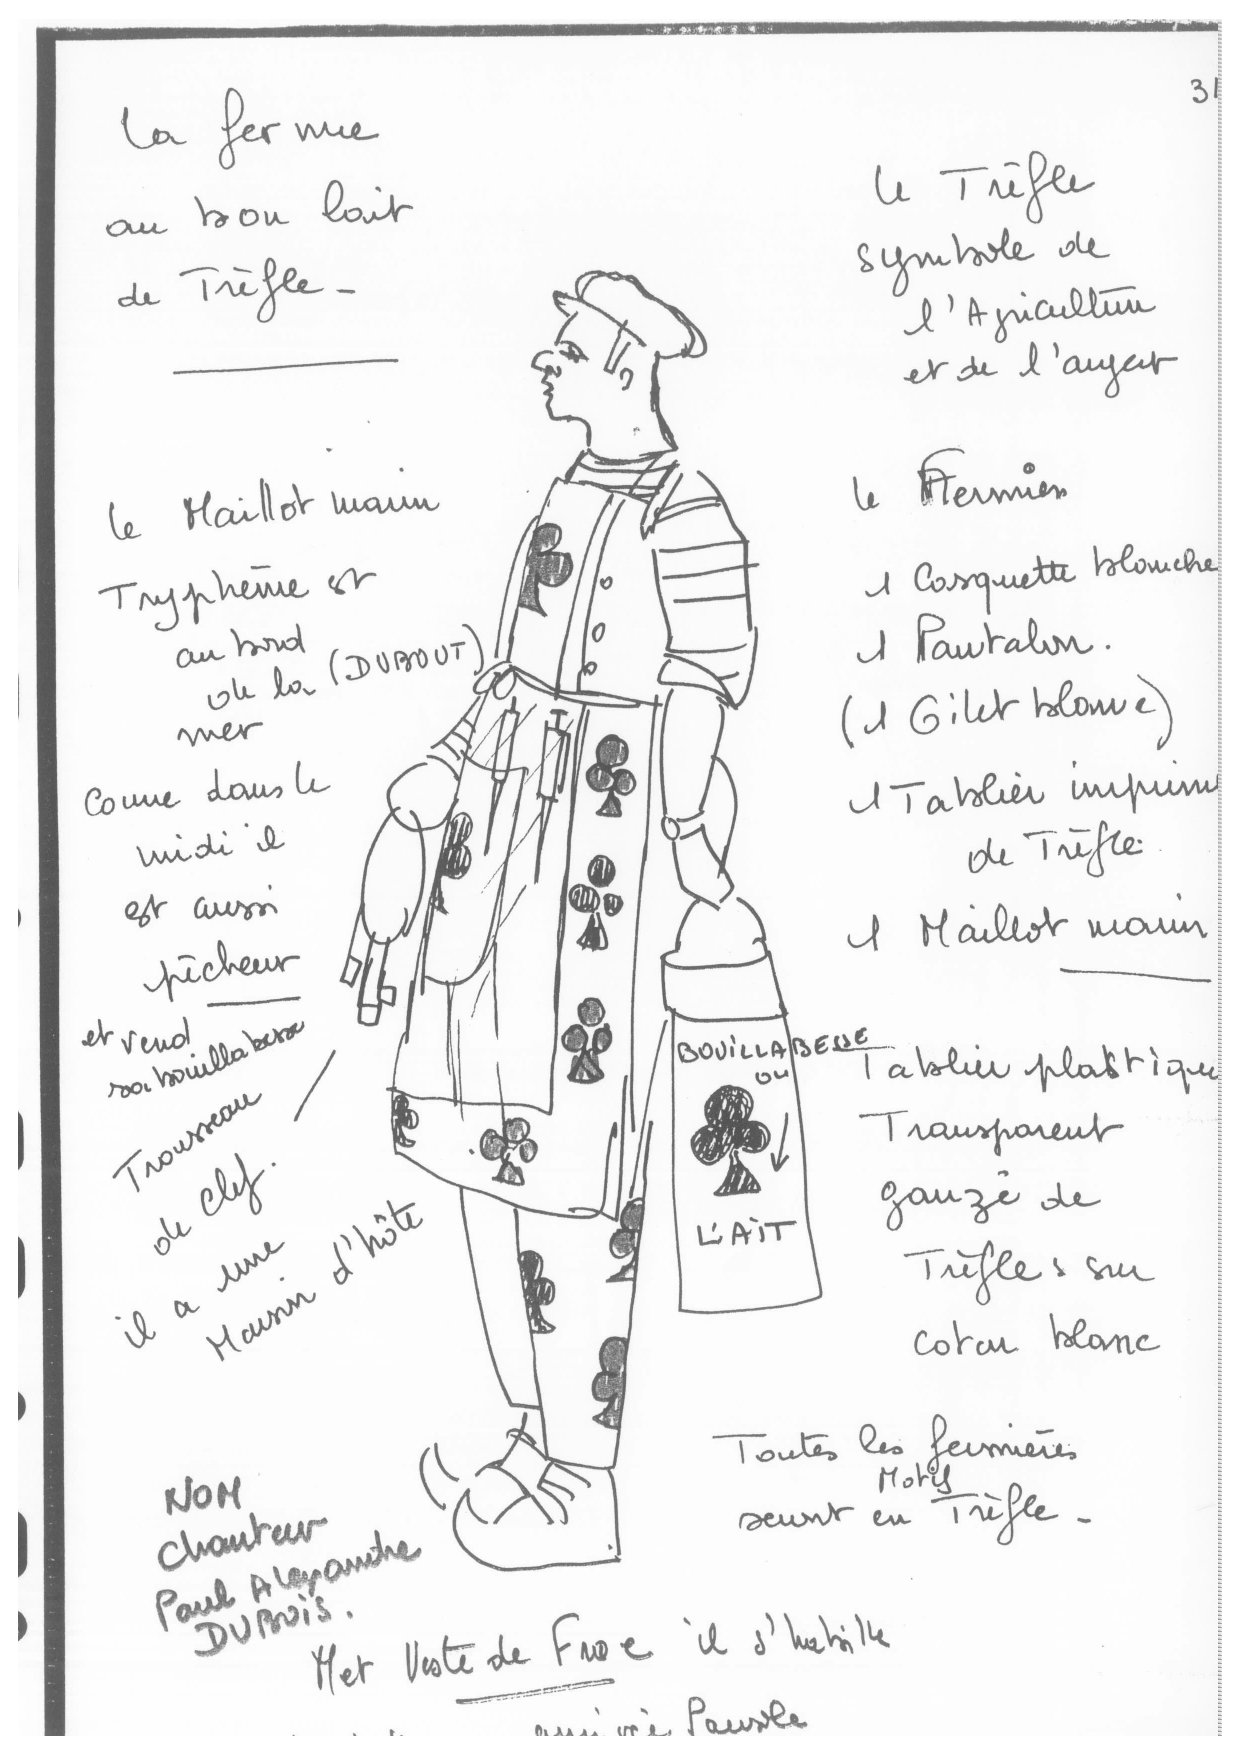 31
La ferme
au bon lait
de Trèfle -
le Trèfle
symbole de
l'Agriculture
et de l'argent
le Maillot marin
Tryphème est
au bord
de la (DUBOUT)
mer
comme dans le
midi il
est aussi
pêcheur
et vend
sa bouillabesse
Trousseau
de clef.
il a une
Maison d'hôte
le Fermier
1 Casquette blanche
1 Pantalon.
(1 Gilet blanc)
1 Tablier imprim
de Trèfle
1 Maillot marin
BOUILLABESSE
ou
L'AIT
Tablier plastique
Transparent
gauzé de
Trèfles sur
coton blanc
Toutes les fermières
Motif
seront en Trèfle -
NOM
chanteur
Paul Alexandre
DUBOIS.
Met Veste de Frac il s'habille
arrivée Pausole